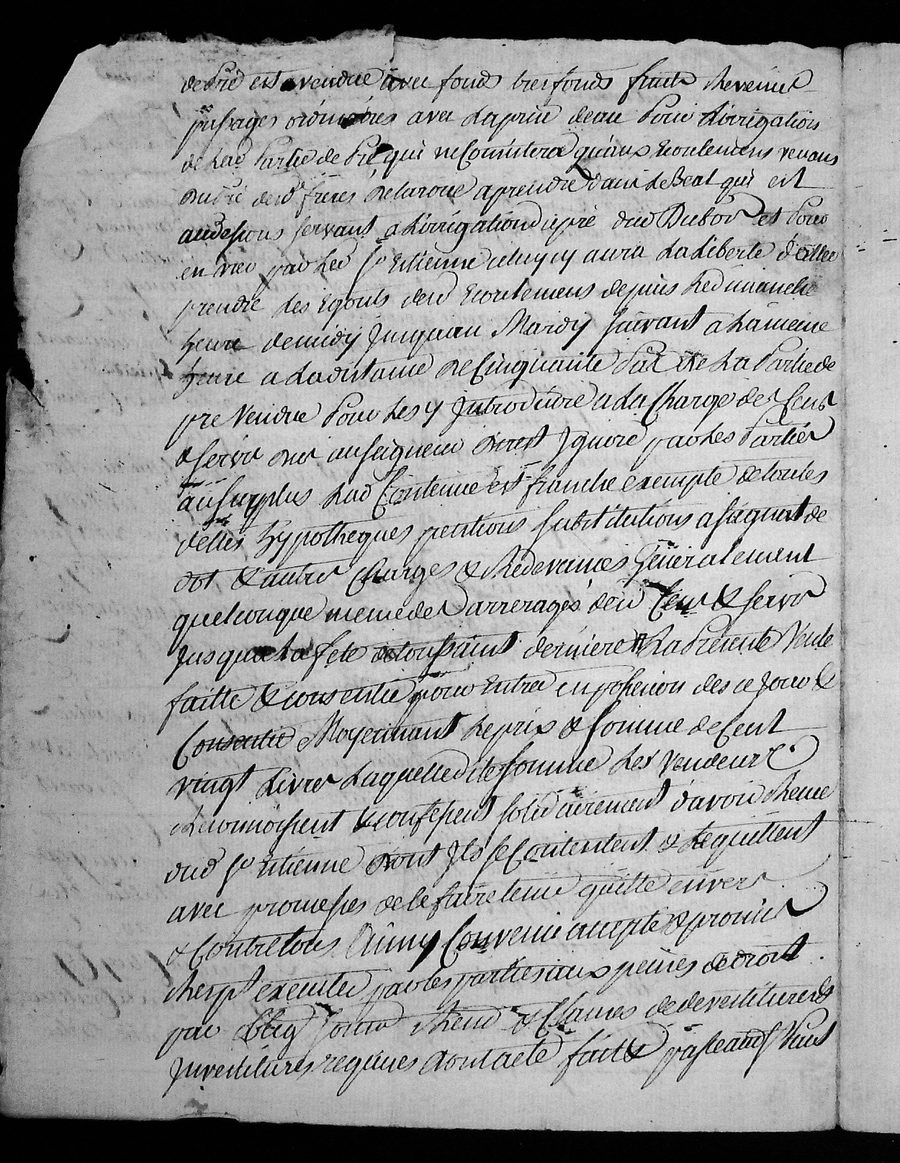 de Pré est vendue avec fonds tres fonds fruits Revenus
passages ordinaires avec La prise deau Pour Lirrigation
de Lad Partie de Pré qui ne Consistera quaux Ecoulemens venans
Du Pré desd frères Delaroue a prendre dans Le Beal qui est
au dessous servant a Lirrigation du pré dud Dubois et Pour
en user par Led Sr Etienne aura La Liberté
prendre Les Egouts desd Ecoulemens depuis Le dimanche
heure de midy Jusquau Mardy suivant a La meme
heure a La distance De Cinquante Pas de La Partie de
pré Vendue Pour Les y Introduire a La Charge de Cens
& servis au seigneur Ignoré par Les Parties
au surplus Lad Contenue est franche exempte de toutes
dettes hypotheques petitions substitutions a
dot & autres Charges & Redevances Généralement
quelconque meme des arrerages dud Cens & servis
Jusqua La fete de toussaint derniere La Présente Vente
faitte & consentie pour Entrer en possession des ce Jour &
Consentie Moyennant Le prix & somme de Cent
vingt Livres Laquelle dite somme Les Vendeurs
Reconnoissent & confessent solidairement davoir Reçue
dud Sr Etienne dont Ils se Contentent & Lequittent
avec promesses de Le faire tenir quitte envers
& Contre tous Ainsy Convenu accepté & promis
Respt executer par Les parties aux peines de droit
par oblig Soum Renon & Clauses de devestitures &
Investitures requises dont acte fait & passé